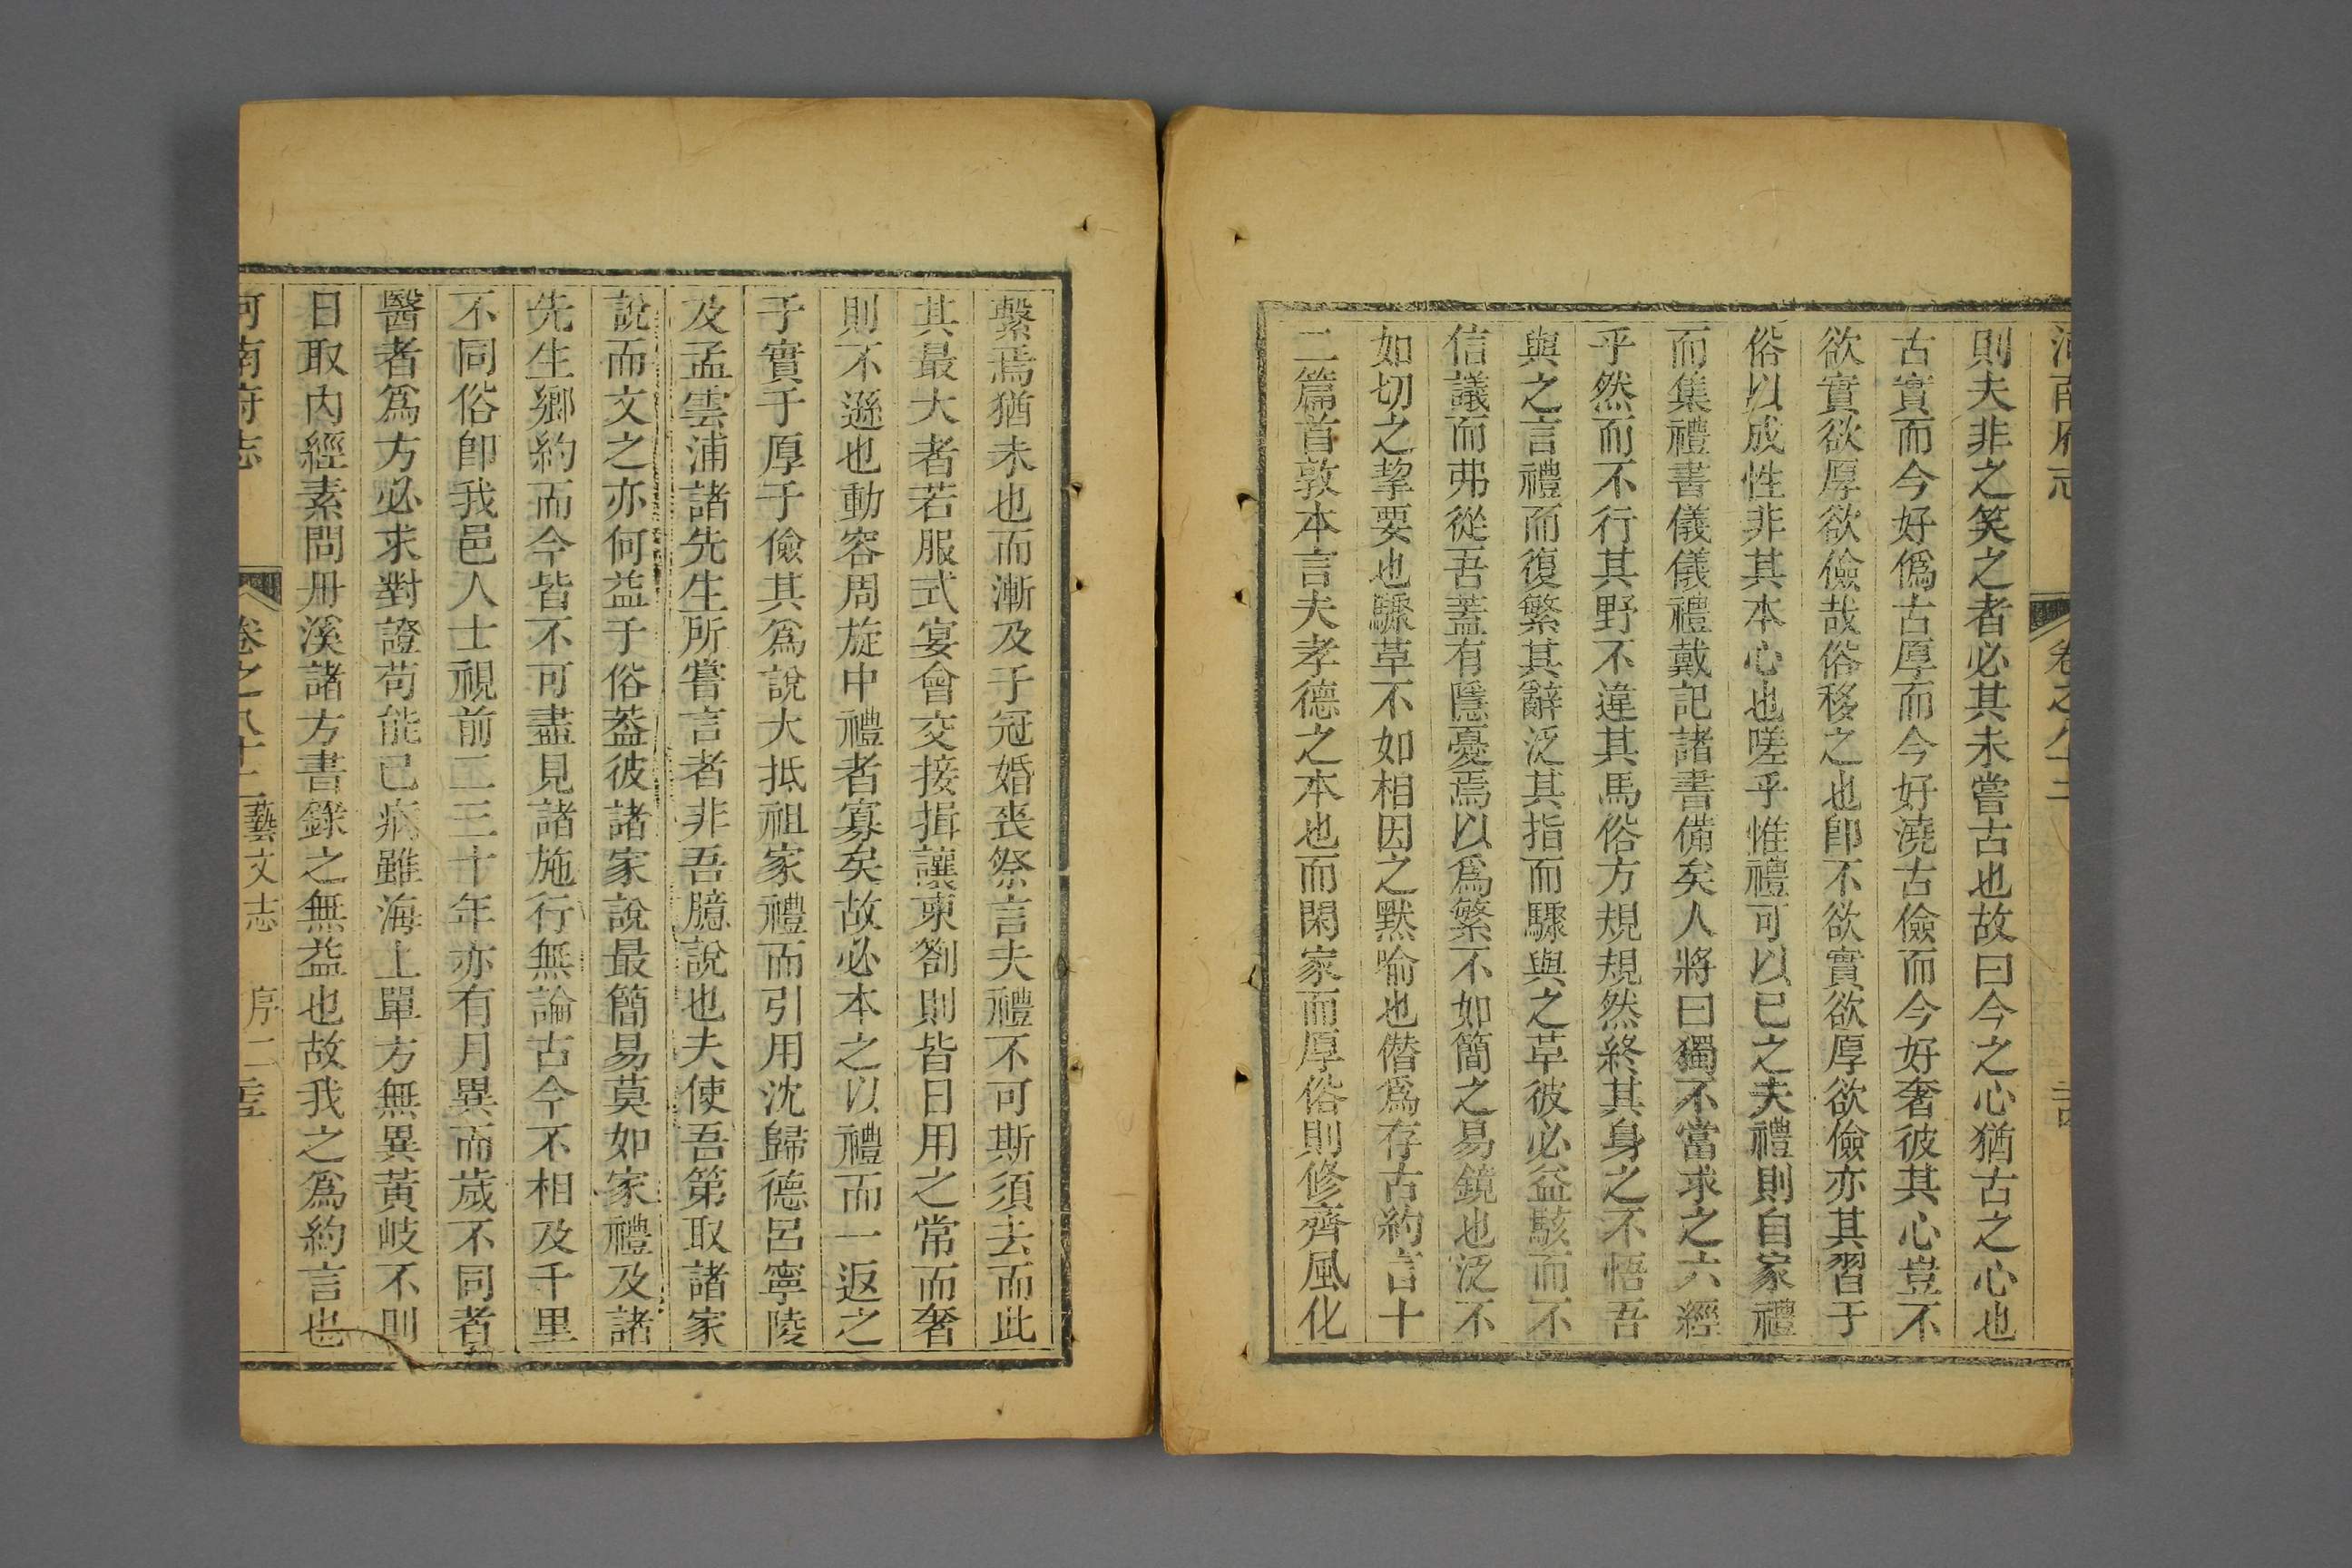 河南府志 卷之八十三
則夫非之笑之者必其未嘗古也故曰今之心猶古之心也
古實而今好僞古厚而今好澆古儉而今好奢彼其心豈不
欲實欲厚欲儉哉俗移之也卽不欲實欲厚欲儉亦其習于
俗以成性非其本心也嗟乎惟禮可以已之夫禮則自家禮
而集禮書儀儀禮戴記諸書備矣人將曰獨不當求之六經
乎然而不行其野不違其馬俗方規規然終其身之不悟吾
與之言禮而復繁其辭泛其指而驟與之草彼必益駭而不
信議而弗從吾蓋有隱憂焉以爲繁不如簡之易鏡也泛不
如切之挈要也驟草不如相因之黙喻也僭爲存古約言十
二篇首敦本言夫孝德之本也而閑家而厚俗則修齊風化
繫焉猶未也而漸及于冠婚喪祭言夫禮不可斯須去而此
其最大者若服式宴會交接揖讓柬劄則皆日用之常而奢
則不遜也動容周旋中禮者寡矣故必本之以禮而一返之
于實于厚于儉其爲說大抵祖家禮而引用沈歸德呂寧陵
及孟雲浦諸先生所嘗言者非吾臆說也夫使吾第取諸家
說而文之亦何益于俗葢彼諸家說最簡易莫如家禮及諸
先生鄉約而今皆不可盡見諸施行無論古今不相及千里
不同俗卽我邑人士視前二三十年亦有月異而歲不同者
醫者爲方必求對證苟能已病雖海上單方無異黃岐不則
日取內經素問丹溪諸方書錄之無益也故我之爲約言也
河南府志 卷之八十三 藝文志 序二